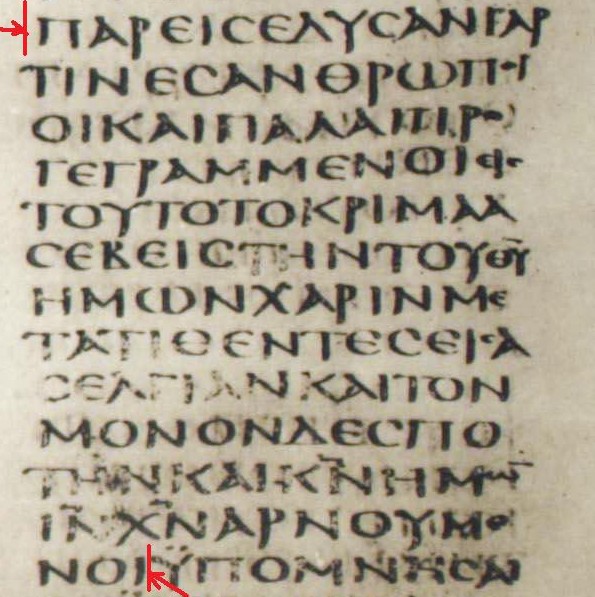 ΠΑΡΕΙϹΕΔΥϹΑΝΓΑΡ
ΤΙΝΕϹΑΝΘΡΩΠΟΙ
ΟΙΚΑΙΠΑΛΑΙΠΡΟ
ΓΕΓΡΑΜΜΕΝΟΙΕΙϹ
ΤΟΥΤΟΤΟΚΡΙΜΑΑ
ϹΕΒΕΙϹΤΗΝΤΟΥΘ̅Υ̅
ΗΜΩΝΧΑΡΙΝΜΕ
ΤΑΤΙΘΕΝΤΕϹΕΙϹΑ
ϹΕΛΓΙΑΝΚΑΙΤΟΝ
ΜΟΝΟΝΔΕϹΠΟ
ΤΗΝΚΑΙΚ̅Ν̅ΗΜΩ̅
Ι̅Ν̅Χ̅Ν̅ΑΡΝΟΥΜΕ
ΝΟΙΫΠΟΜΝΗϹΑΙ